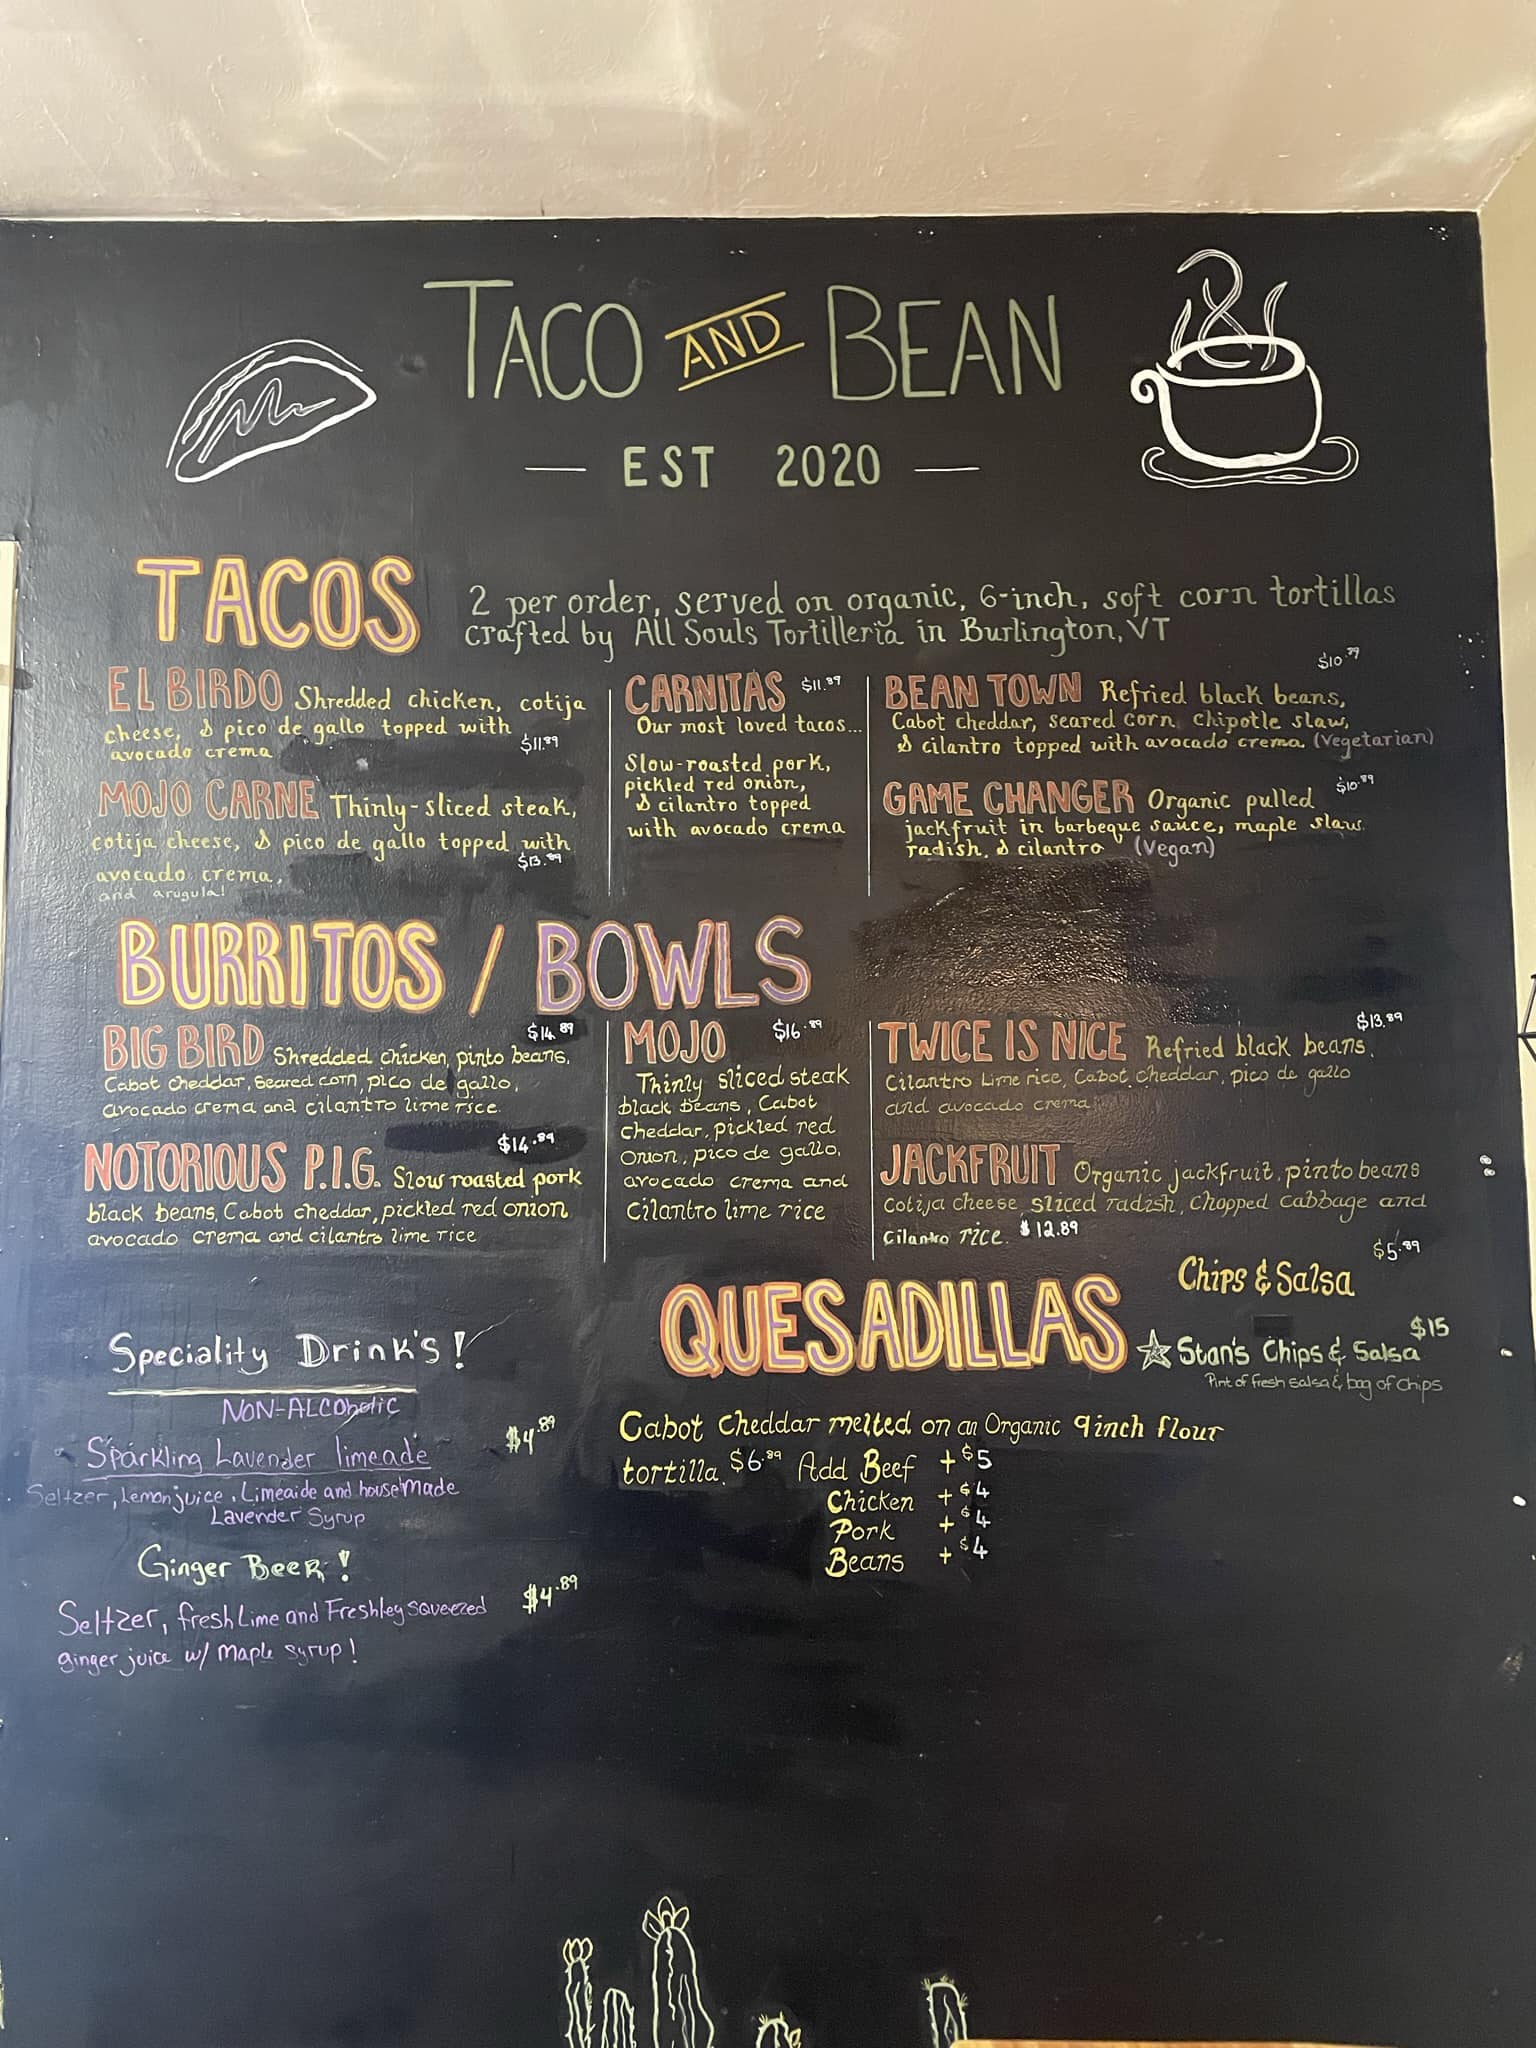 TACO AND BEAN
EST 2020
TACOS
2 per order, served on organic, 6-inch, soft corn tortillas
crafted by All Souls Tortilleria in Burlington, VT
EL BIRDO Shredded chicken, cotija
cheese, & pico de gallo topped with
avocado crema $11.89
MOJO CARNE Thinly-sliced steak,
cotija cheese, & pico de gallo topped with
$13.89
avocado crema,
and arugula!
CARNITAS $11.89
Our most loved tacos...
Slow-roasted pork,
pickled red onion,
& cilantro topped
with avocado crema
$10.89
BEAN TOWN Refried black beans,
Cabot cheddar, seared corn, chipotle slaw,
& cilantro topped with avocado crema (Vegetarian)
GAME CHANGER Organic pulled $10.89
jackfruit in barbeque sauce, maple slaw
radish, & cilantro (Vegan)
BURRITOS / BOWLS
$14.89
BIG BIRD Shredded chicken, pinto beans,
Cabot cheddar, seared corn, pico de gallo,
avocado crema and cilantro lime rice.
$14.89
NOTORIOUS P.I.G. Slow roasted pork
black beans, Cabot cheddar, pickled red onion
avocado crema and cilantro lime rice
MOJO $16.89
Thinly sliced steak
black beans, Cabot
cheddar, pickled red
onion, pico de gallo,
avocado crema and
cilantro lime rice
$13.89
TWICE IS NICE Refried black beans,
cilantro lime rice, Cabot cheddar, pico de gallo
and avocado crema
JACKFRUIT Organic jackfruit, pinto beans
cotija cheese sliced radish, chopped cabbage and
cilantro rice. $12.89
$5.89
Chips & Salsa
$15
Stan's Chips & Salsa
Pint of fresh salsa & bag of chips
QUESADILLAS
Cabot cheddar melted on an Organic 9inch flour
tortilla. $6.89 Add Beef + $5
Chicken + $4
Pork + $4
Beans + $4
Speciality Drink's!
NON-ALCOholic
$4.89
Sparkling Lavender limeade
Seltzer, Lemon juice, Limeaide and housemade
Lavender Syrup
Ginger BeeR!
$4.89
Seltzer, fresh Lime and Freshley squeezed
ginger juice w/ maple syrup!